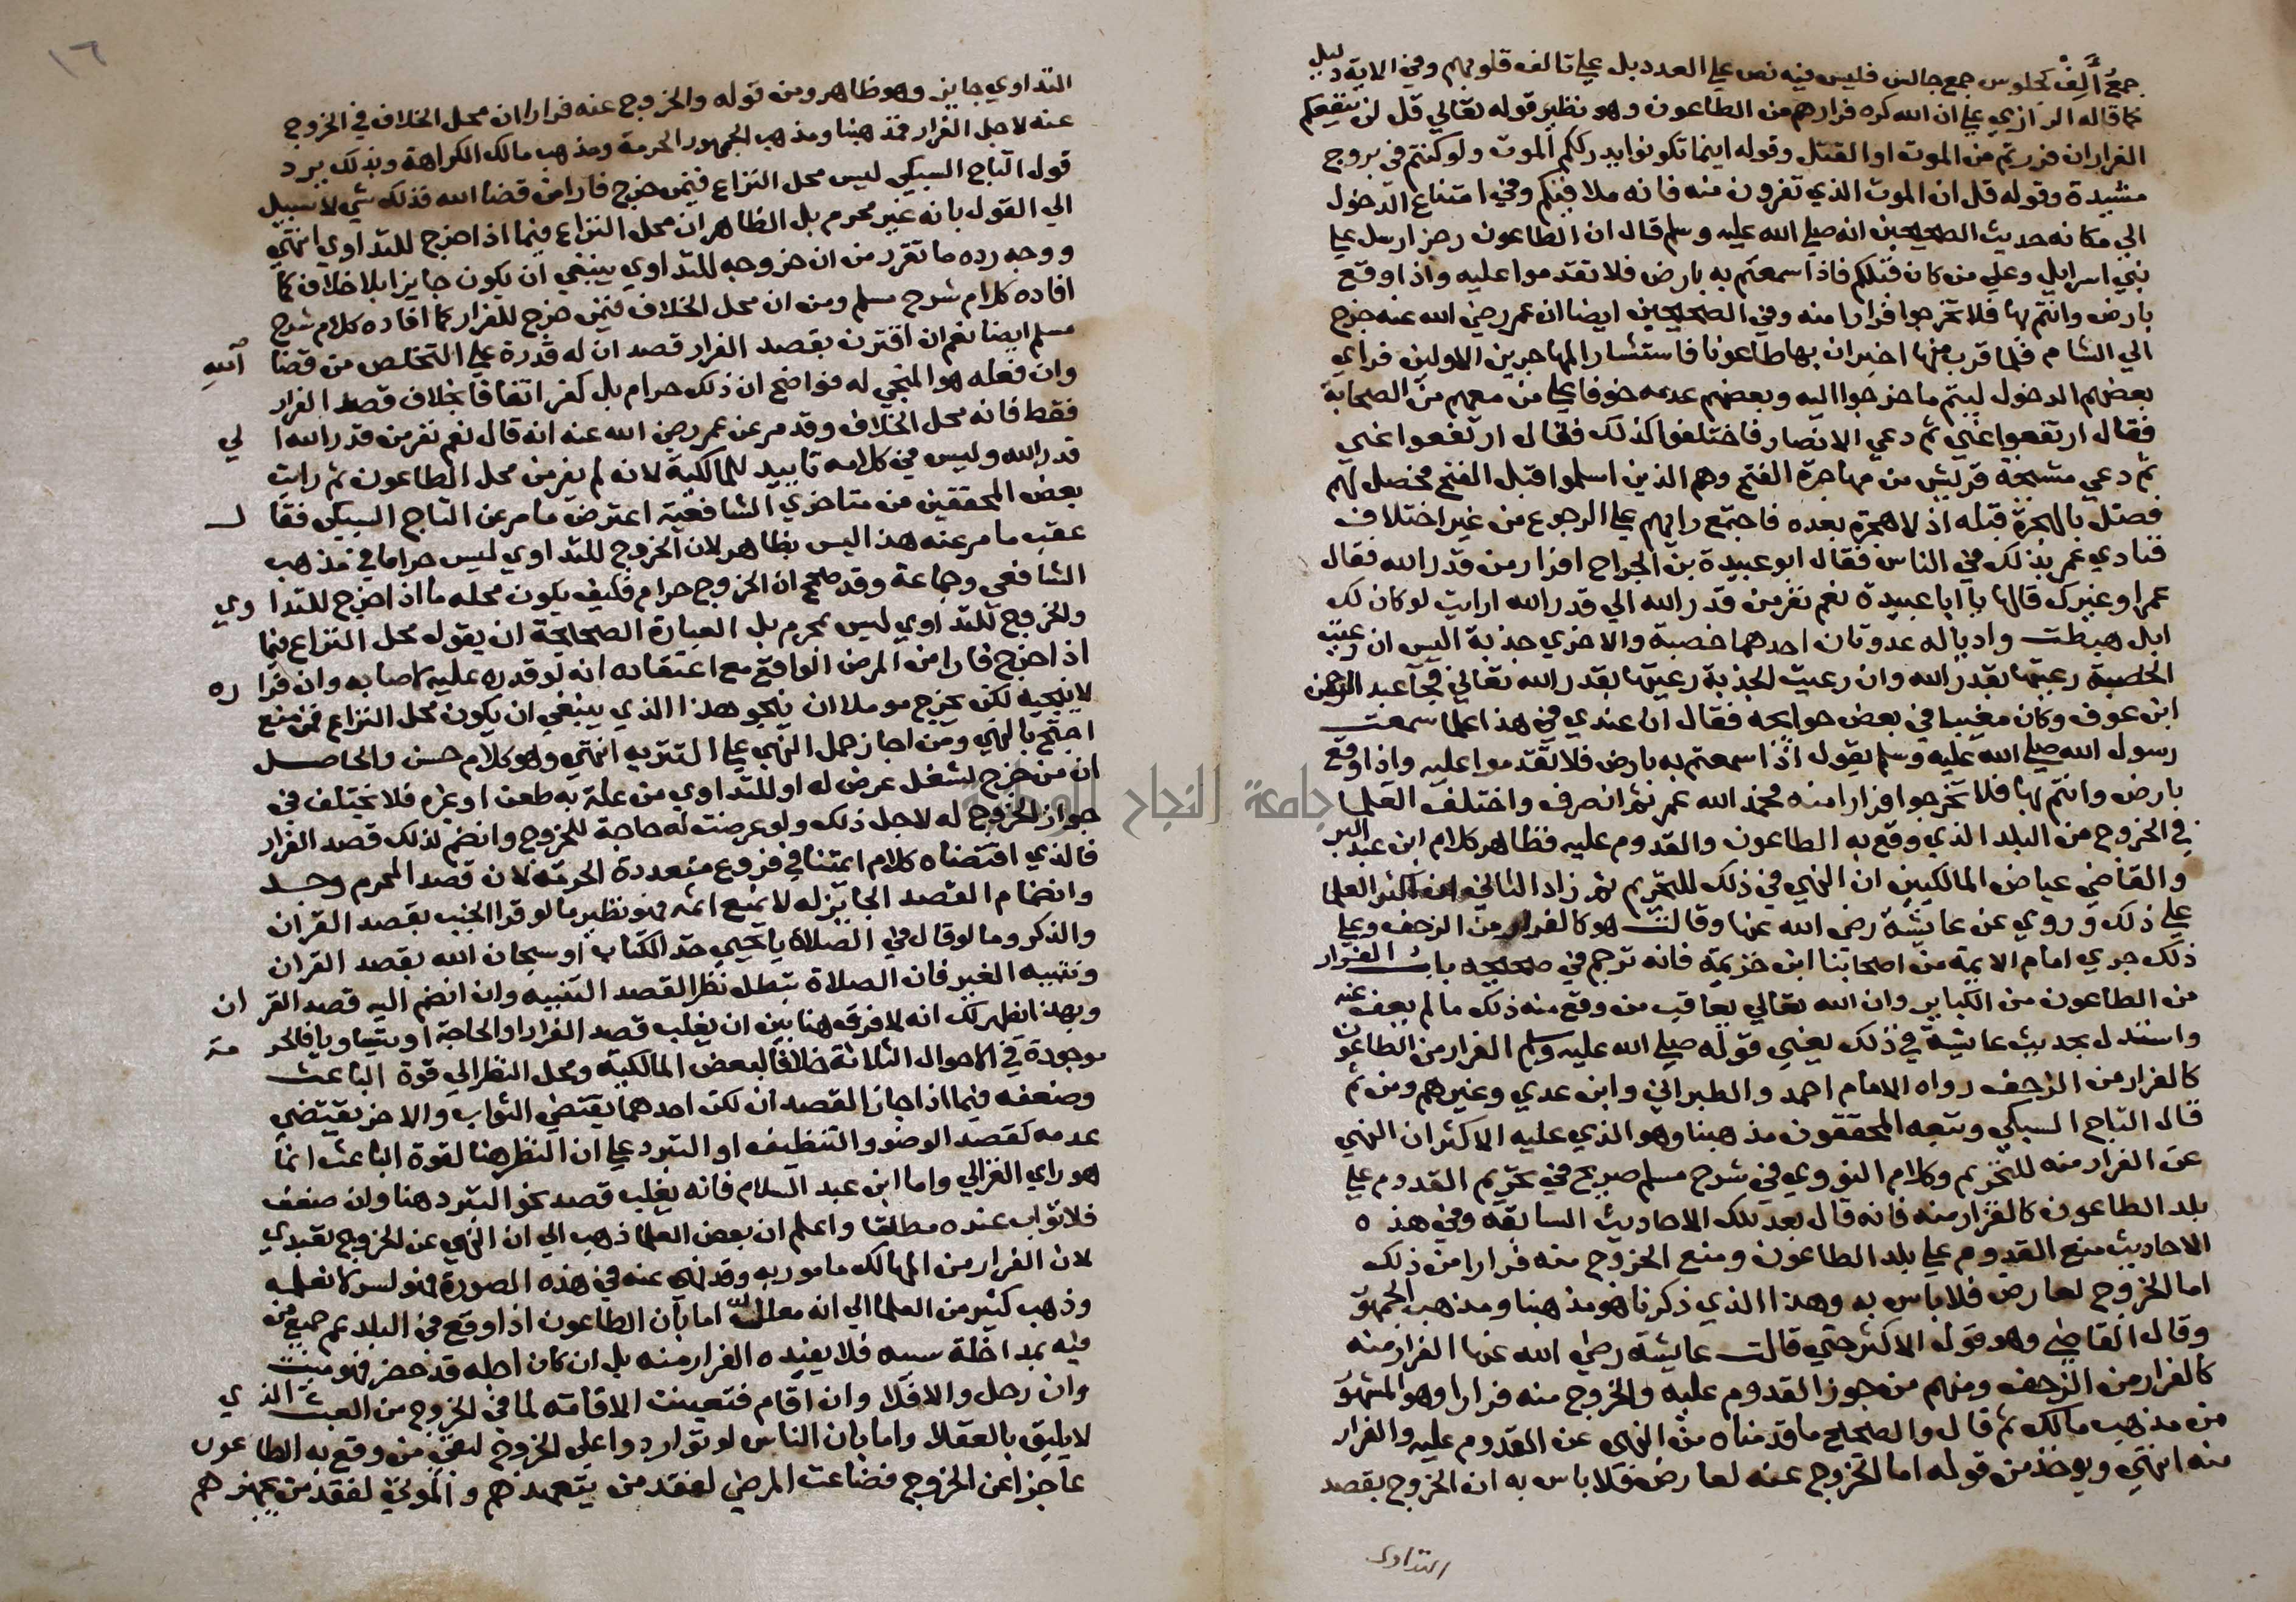 جمع اٰلف كجلوس جمع جالس فليس فيه نص علي العدد بل علي تالف قلوبهم وفي الاية دليل
كما قاله الرازي علي ان الله كره فرارهم من الطاعون وهو نظير قوله تعالي قل لن ينفعكم
الفرار ان فررتم من الموت او القتل وقوله اينما تكونوا يدرككم الموت ولو كنتم في بروج
مشيدة وقوله قل ان الموت الذي تفرون منه فانه ملاقيكم وفي امتناع الدخول
الي مكانه حديث الصحيحين انه صلي الله عليه وسلم قال ان الطاعون رجز ارسل علي
بني اسرايل وعلي من كان قبلكم فاذا سمعتم به بارض فلا تقدموا عليه واذا وقع
بارض وانتم بها فلا تخرجوا فرارا منه وفي الصحيحين ايضا ان عمر رضي الله عنه خرج
الي الشام فلما قرب منها اخبر ان بها طاعونا فاستشار المهاجرين الاولين فراي
بعضهم الدخول ليتم ما خرجوا اليه وبعضهم عدمه خوفا علي من معهم من الصحابة
فقال ارتفعوا عني ثم دعي الانصار فاختلفوا كذلك فقال ارتفعوا عني
ثم دعي مشيخة قريش من مهاجرة الفتح وهم الذين اسلموا قبل الفتح فحصل لهم
فضل بالهجرة قبله اذ لا هجرة بعده فاجتمع رايهم علي الرجوع من غير اختلاف
فنادي عمر بذلك في الناس فقال ابو عبيدة بن الجراح افرار من قدر الله فقال
عمر او غيرك قالها يا ابا عبيدة نعم نفر من قدر الله الي قدر الله ارايت لو كان لك
ابل هبطت واديا له عدوتان احدهما خصبة والاخري جدبة اليس ان رعيت
الخصبة رعيتها بقدر الله وان رعيت الجدبة رعيتها بقدر الله تعالي فجا عبد الرحمن
ابن عوف وكان مغيبا في بعض حوايجه فقال ان عندي في هذا علما سمعت
رسول الله صلي الله عليه وسلم يقول اذا سمعتم به بارض فلا تقدموا عليه واذا وقع
بارض وانتم بها فلا تخرجوا فرارا منه فحمد الله عمر ثم انصرف واختلف العلما
في الخروج من البلد الذي وقع به الطاعون والقدوم عليه فظاهر كلام ابن عبد البر
والقاضي عياض المالكيين ان النهي في ذلك للتحريم ثم زاد الثاني ان اكثر العلما
علي ذلك وروي عن عايشة رضي الله عنها وقالت هو كالفرار من الزحف وعلي
ذلك جري امام الايمة من اصحابنا ابن خزيمة فانه ترجم في صحيحه باب الفرار
من الطاعون من الكباير وان الله تعالي يعاقب من وقع منه ذلك ما لم يعف عنه
واستدل بحديث عايشة في ذلك يعني قوله صلي الله عليه وسلم الفرار من الطاعون
كالفرار من الزحف رواه الامام احمد والطبراني وابن عدي وغيرهم ومن ثم
قال التاج السبكي وتبعه المحققون مذهبنا وهو الذي عليه الاكثر ان النهي
عن الفرار منه للتحريم وكلام النووي في شرح مسلم صريح في تحريم القدوم علي
بلد الطاعون كالفرار منه فانه قال بعد تلك الاحاديث السابقة وفي هذه
الاحاديث منع القدوم علي بلد الطاعون ومنع الخروج منه فرارا من ذلك
اما الخروج لعارض فلا باس به وهذا الذي ذكرنا هو مذهبنا ومذهب الجمهو
وقال القاضي وهو قول الاكثر حتي قالت عايشة رضي الله عنها الفرار منه
كالفرار من الزحف ومنهم من جوز القدوم عليه والخروج منه فرارا وهو المشهو
من مذهب مالك ثم قال والصحيح ما قدمناه من النهي عن القدوم عليه والفرار
منه انتهي ويوخذ من قوله اما الخروج عنه لعارض فلا باس به ان الخروج بقصد
التداوي
١٦
التداوي جايز وهو ظاهر ومن قوله والخروج عنه فرارا ان محل الخلاف في الخروج
عنه لاجل الفرار فمذهبنا ومذهب الجمهور الحرمة ومذهب مالك الكراهة وبذلك يرد
قول التاج السبكي ليس محل النزاع فيمن خرج فارا من قضا الله فذلك شي لا سبيل
الي القول بانه غير محرم بل الظاهر ان محل النزاع فيما اذا خرج للتداوي انتهي
ووجه رده ما تقرر من ان خروجه للتداوي ينبغي ان يكون جايزا بلا خلاف كما
افاده كلام شرح مسلم ومن ان محل الخلاف فيمن خرج للفرار كما افاده كلام شرح
مسلم ايضا نعم ان اقترن بقصد الفرار قصد ان له قدرة علي التخلص من قضا الله
وان فعله هو المنجي له فواضح ان ذلك حرام بل كفر اتفاقا بخلاف قصد الفرار
فقط فانه محل الخلاف وقد مر عن عمر رضي الله عنه انه قال نعم نفر من قدر الله الي
قدر الله وليس في كلامه تاييد للمالكية لانه لم يفر من محل الطاعون ثم رايت
بعض المحققين من متاخري الشافعية اعترض ما مر عن التاج السبكي فقال
عقب ما مر عنه هذا ليس بظاهر لان الخروج للتداوي ليس حراما في مذهب
الشافعي وجماعة وقد صحح ان الخروج حرام فكيف يكون محله ما اذا خرج للتداوي
والخروج للتداوي ليس بمحرم بل العبارة الصحيحة ان يقول محل النزاع فيما
اذا خرج فارا من المرض الواقع مع اعتقاده انه لو قدره عليه لاصابه وان فراره
لا ينجيه لكن يخرج موملا ان ينجو هذا الذي ينبغي ان يكون محل النزاع فمن منع
احتج بالنهي ومن اجاز حمل النهي علي التنزيه انتهي وهو كلام حسن والحاصل
ان من خرج لشغل عرض له او للتداوي من علة به طعن او غيره فلا يختلف في
جواز الخروج له لاجل ذلك ولو عرضت له حاجة للخروج وانضم لذلك قصد الفرار
فالذي اقتضاه كلام ايمتنا في فروع متعددة الحرمة لان قصد المحرم وجد
وانضمام القصد الجايز له لا يمنع اثمه فهو نظير ما لو قرا الجنب بقصد القران
والذكر وما لو قال في الصلاة يا يحيي خذ الكتاب او سبحان الله بقصد القران
وتنبيه الغير فان الصلاة تبطل نظرا لقصد التنبيه وان انضم اليه قصد القران
وبهذا يظهر لك انه لا فرق هنا بين ان يغلب قصد الفرار او الحاجة او يتساويا فالحرمة
موجودة في الاحوال الثلاثة خلافا لبعض المالكية ومحل النظر الي قوة الباعث
وضعفه فيما اذا جاز القصدان لكن احدهما يقتضي الثواب والاخر يقتضي
عدمه كقصد الوضو والتنظيف او التبرد علي ان النظر هنا لقوة الباعث انما
هو راي الغزالي واما ابن عبد السلام فانه يغلب قصد نحو التبرد هنا وان ضعف
فلا ثواب عنده مطلقا واعلم ان بعض العلما ذهب الي ان النهي عن الخروج تعبدي
لان الفرار من المهالك مامور به وقد نهي عنه في هذه الصورة فهو لسر لا نعلمه
وذهب كثير من العلما الي انه معلل اما بان الطاعون اذا وقع في البلد عم جميع من
فيه بمداخلة سببه فلا يفيده الفرار منه بل ان كان اجله قد حضر فهو ميت
وان رحل والا فلا وان اقام فتعينت الاقامة لما في الخروج من العبث الذي
لا يليق بالعقلا واما بان الناس لو تواردوا علي الخروج لبقي من وقع به الطاعون
عاجزا عن الخروج فضاعت المرضي لفقد من يتعهدهم والموتي لفقد من يجهزهم
جامعة النجاح الوطنية